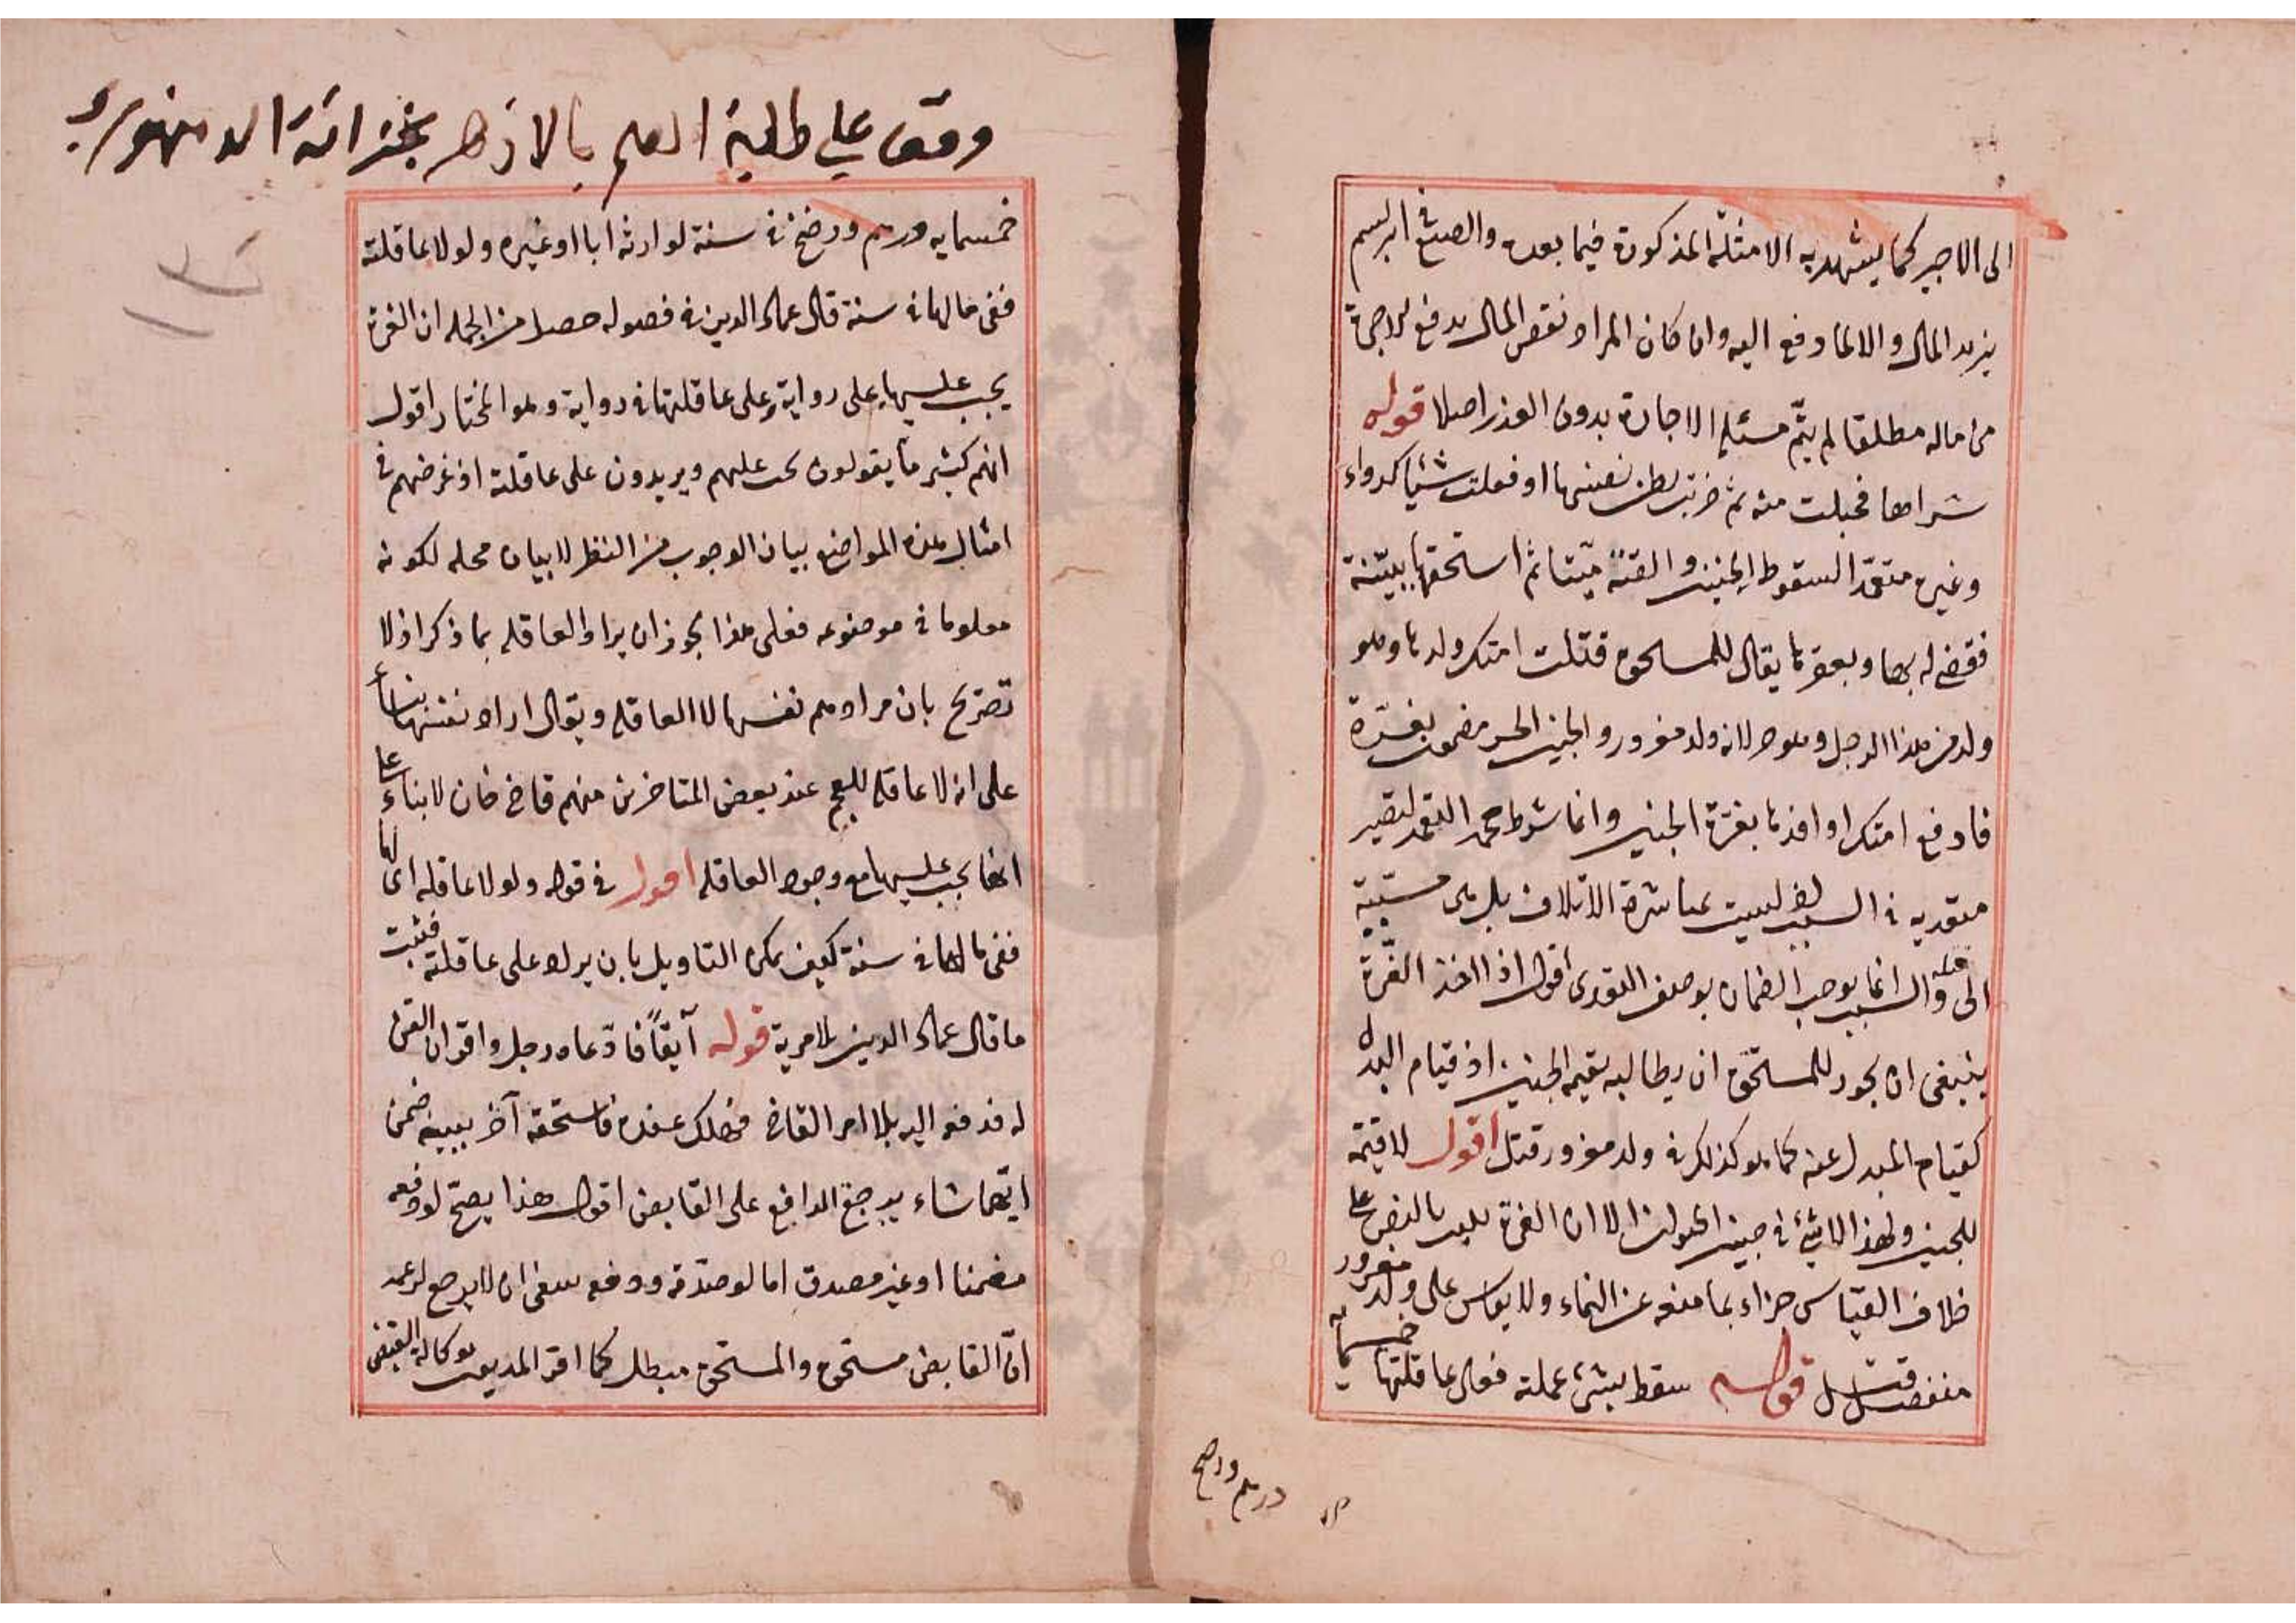 الى الاجير كما يشهد به الامثلة المذكورة فيما بعده والصبغ في ابريسم
يزيد المال والا لما دفع اليه وان كان المراد نقص المال بدفع الاجرة
من ماله مطلقا لم يتم مسئلة الاجارة بدون العذر اصلا قوله
شراها فحبلت منه ثم ضربت بطن نفسها او فعلت شيأ كدواء
وغيره متعمدا لسقوط الجنين والقته ميتا ثم استحقها ببينة
فقضى له بها وبعقرها يقال للمستحق قتلت امتك ولدها وهو
ولد من هذا الرجل وهو حر لانه ولد مغرور والجنين الحر مضمون بغرة
فادفع امتك او افدها بغرة الجنين وانما شرط محمد التعمد لتصير
متعدية في السبب ليست مباشرة الاتلاف بل هي مسببة
والسبب انما يوجب الضمان بوصف التعدى اقول اذا اخذ الغرة
ينبغى ان يجوز للمستحق ان يطالبه بقيمة الجنين اذ قيام البدل
كقيام المبدل عنه كما هو كذلك في ولد مغرور قتل اقول لا قيمة
للجنين ولهذا لا شئ في جنين الا ان الغرة بالنص على
خلاف القياس جزاء بما منعه عن النماء ولا يقاس على ولد مغرور
منفصل قتل قوله سقط بشئ عملته فعلى عاقلتها خمسمائة
درهم ورضخ
وقف على طلبة العلم بالازهر بخزانة الدمنهورى
خمسمايه درهم ورضخ في سنة لوارثه ابا او غيره ولو لا عاقلته
ففى مالها في سنة قال عماد الدين في فصوله حصل من الجملة ان الغرة
يجب عليها على رواية وعلى عاقلتها في رواية وهو المختار اقول
انهم كثير ما يقولون يجب عليهم ويريدون على عاقلة اذ غرضهم في
امثال هذه المواضع بيان الوجوب من النظر لا بيان محله لكونه
معلوما في موضوعه فعلى هذا يجوز ان يراد العاقلة بما ذكر اذ لا
تصريح بان مرادهم نفسها لا العاقلة ويقال اراد نفسها بناء
على انه لا عاقلة للعجم عند بعض المتاخرين منهم قاضي خان لا بناء على
انها يجب عليها مع وجود العاقلة اقول في قوله ولو لا عاقلة اى لها
ففى مالها في سنة كيف يمكن التاويل بان يراد على عاقلته فثبت
ما قال عماد الدين بلا مرية قوله آبقا فادعاه رجل واقر ان القن
له فدفعه اليه بلا امر القاضي فهلك عنده فاستحقه آخر ببينة ضمن
ايهما شاء يرجع الدافع على القابض اقول هذا يصح لو دفعه
مضمنا او غير مصدق اما لو صدقه ودفعه ينبغى ان لا يرجع لزعمه
ان القابض مستحق والمستحق مبطل كما اقر المديون بوكالة القبض